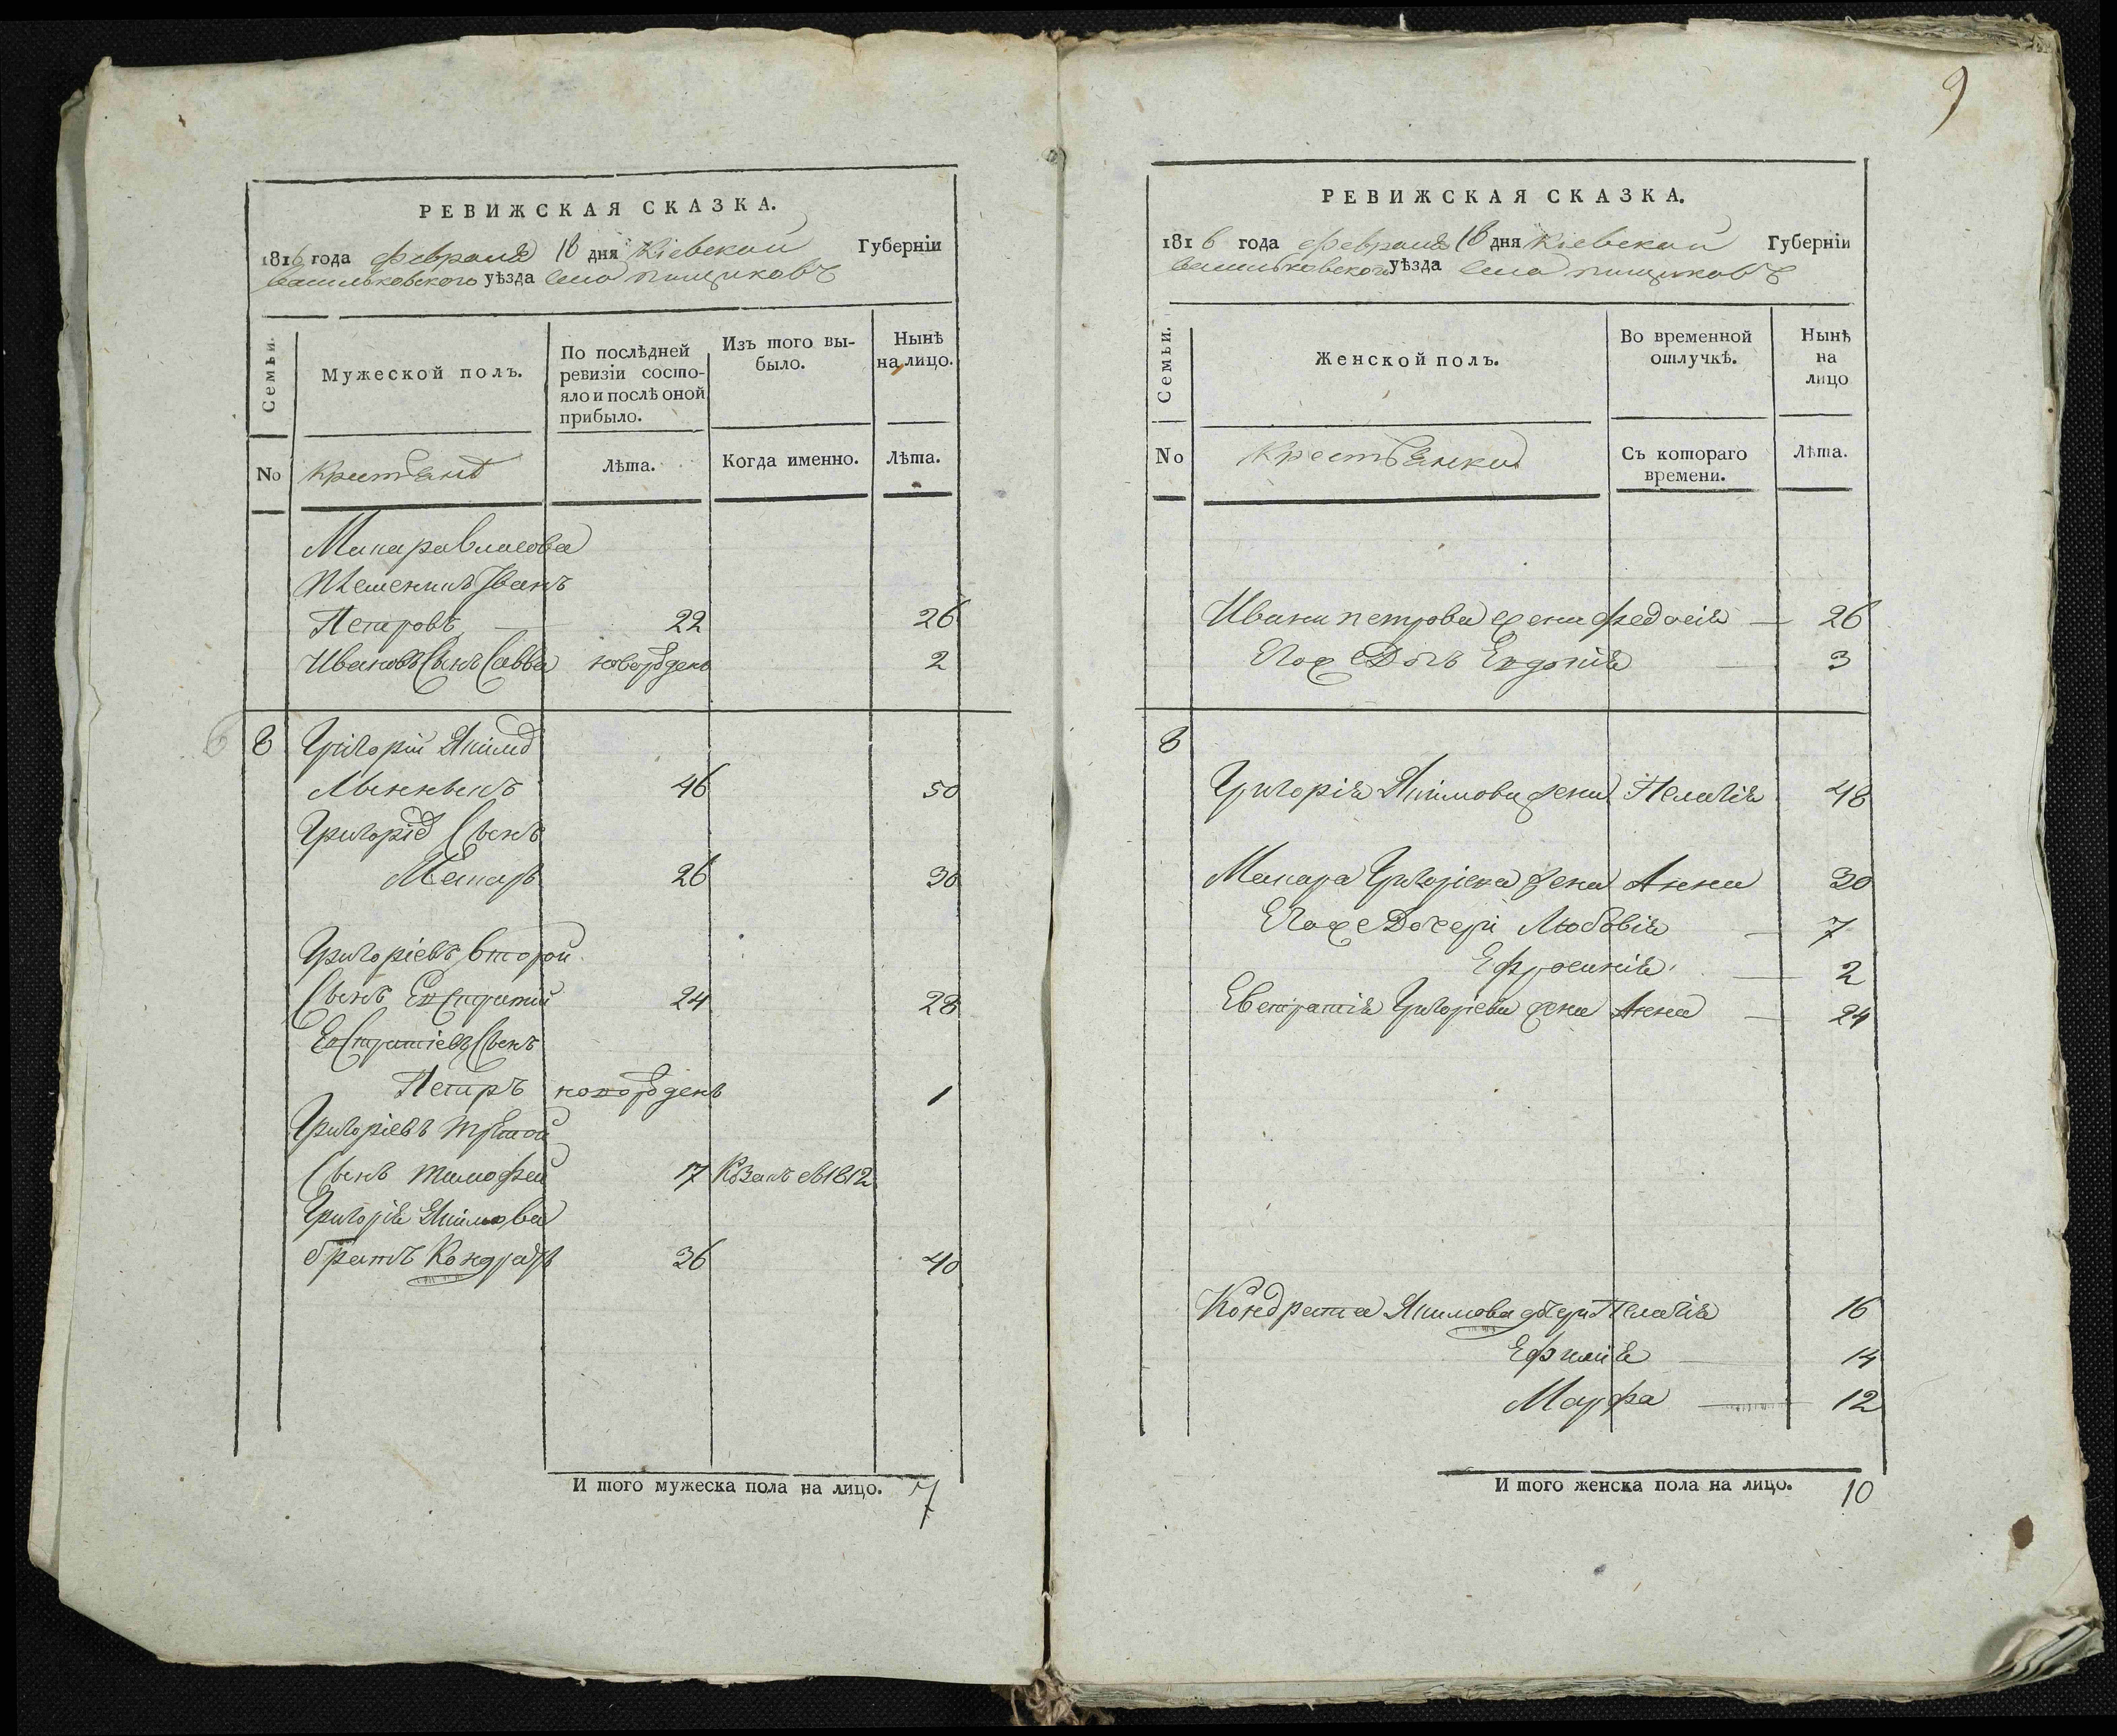 РЕВИЖСКАЯ СКАЗКА.
1816 года февраля 18 дня Кіевской Губерніи
васильковского уѣзда села пищиковъ
Семьи.
Мужеской полъ.
По послѣдней
ревизіи состо-
яло и послѣ оной
прибыло.
Изъ того вы-
было.
Нынѣ
на лицо.
No
Крестьянѣ
Лѣта.
Когда именно.
Лѣта.
Макара власова
Племеникъ Іванъ
Петровъ 22 26
Ивановъ Сынъ Савва новорожденъ 2
8 Григорій Якимо
46 50
Григорія Сынъ
Макаръ 26 30
Григоріевъ второй
Сынъ Евстратий 24 28
Евстратіевъ Сынъ
Петръ новорожденъ 1
Григоріевъ третой
Сынъ тимофей 17 1812
Григорія Якимова
братъ Кондратъ 36 40
И того мужеска пола на лицо. 7
9
РЕВИЖСКАЯ СКАЗКА.
1816 года февраля 18 дня Кіевской Губерніи
васильковского уѣзда села пищиковъ
Семьи.
Женской полъ.
Во временной
отлучкѣ.
Нынѣ
на
лицо
No
Крестьянки
Съ котораго
времени.
Лѣта.
Ивана петрова жена федосія 26
Егоже Дочь Евдокія 3
8
Григорія Якимова жена Пелагія 48
Макара Григоріева жена Анна 30
Егоже Дочери Любовія 7
Ефросинія 2
Евстратія Григоріева жена Анна 24
Кондрата Якимова дочери Пелагія 16
Ефимія 14
Марфа 12
И того женска пола на лицо. 10